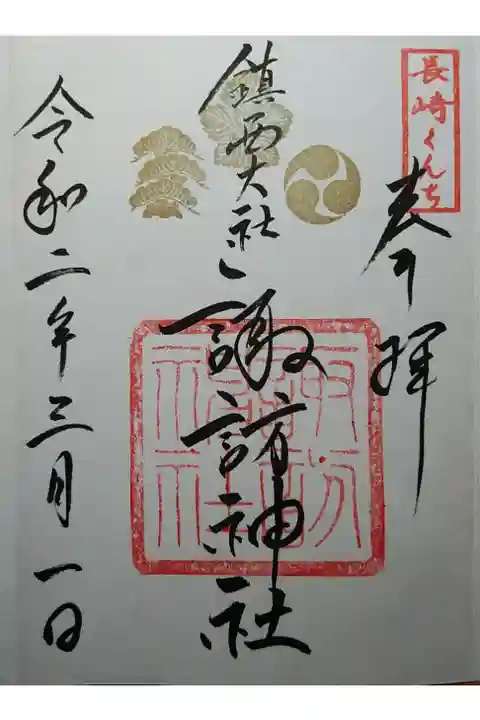 長崎くんち
奉拝
鎮西大社
諏訪神社
令和二年三月一日